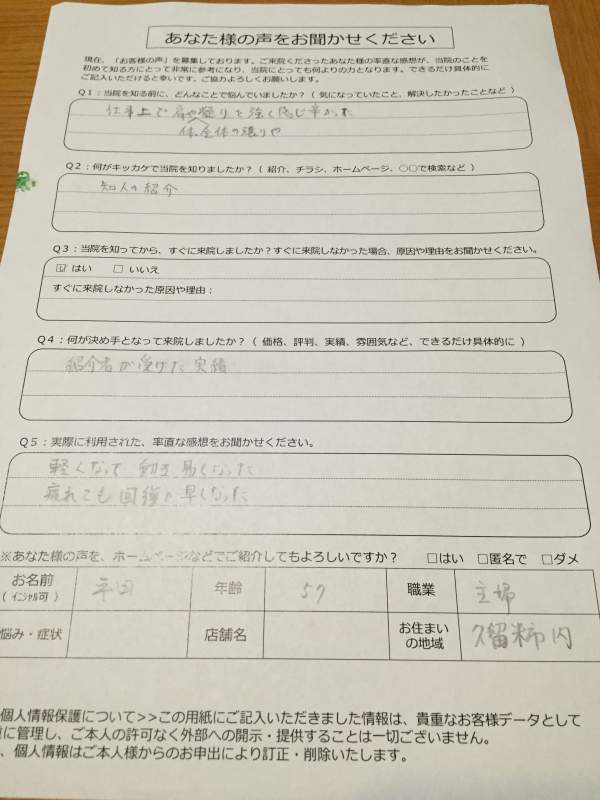 あなた様の声をお聞かせください
現在、「お客様の声」を募集しております。ご来院くださったあなた様の率直な感想が、当院のことを
初めて知る方にとって非常に参考になり、当院にとっても何よりの力となります。できるだけ具体的に
ご記入いただけると幸いです。ご協力よろしくお願いします。
Q1：当院を知る前に、どんなことで悩んでいましたか？（ 気になっていたこと、解決したかったことなど ）
仕事上で肩や張りを強く感じ辛かった
体全体の張りや
Q2：何がキッカケで当院を知りましたか？（ 紹介、チラシ、ホームページ、○○で検索など ）
知人の紹介
Q3：当院を知ってから、すぐに来院しましたか？すぐに来院しなかった場合、原因や理由をお聞かせください。
☑ はい □ いいえ
すぐに来院しなかった原因や理由：
Q4：何が決め手となって来院しましたか？（ 価格、評判、実績、雰囲気など、できるだけ具体的に ）
紹介者が受けた実績
Q5：実際に利用された、率直な感想をお聞かせください。
軽くなって動き易くなった
疲れても回復も早くなった
※あなた様の声を、ホームページなどでご紹介してもよろしいですか？ □はい □匿名で □ダメ
お名前 平田 年齢 57 職業 主婦
（ イニシャル可 ）
悩み・症状 店舗名 お住まいの地域 久留米市内
個人情報保護について>>この用紙にご記入いただきました情報は、貴重なお客様データとして
に管理し、ご本人の許可なく外部への開示・提供することは一切ございません。
、個人情報はご本人様からのお申出により訂正・削除いたします。